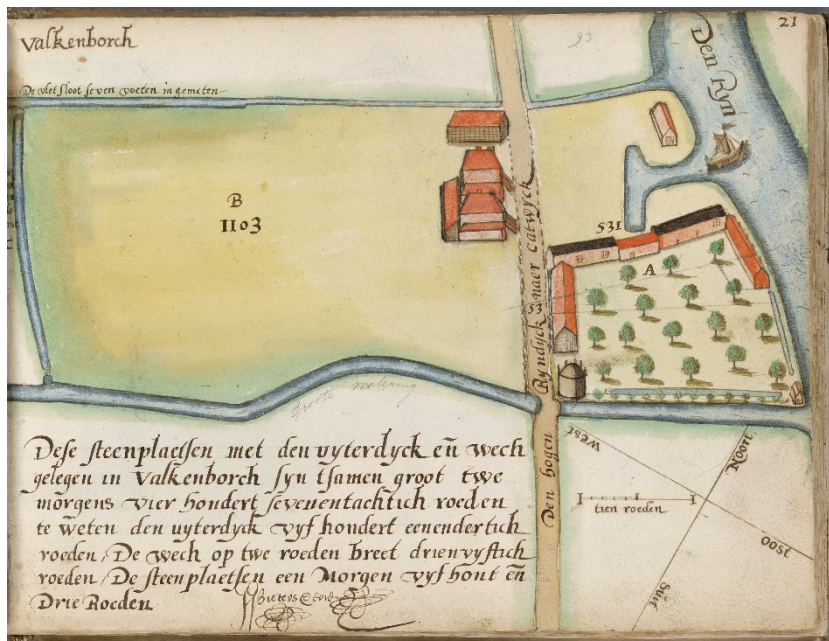 21
Valkenborch
93
De vliet sloot seven voeten in gemeten
Den Ryn
B
1103
531
A
53
Den hogen Ryndyck naer catwyck
Groote watering
Dese steenplaetsen met den uyterdyck eñ wech
gelegen in Valkenborch syn tsamen groot twe
morgens vier hondert sevenentachtich roeden
te weten den uyterdyck vyf hondert eenendertich
roeden, De wech op twe roeden breet drienvyftich
roeden, De steenplaetsen een Morgen vyf hont eñ
Drie Roeden
West
Noort
tien roeden
oost
Suit